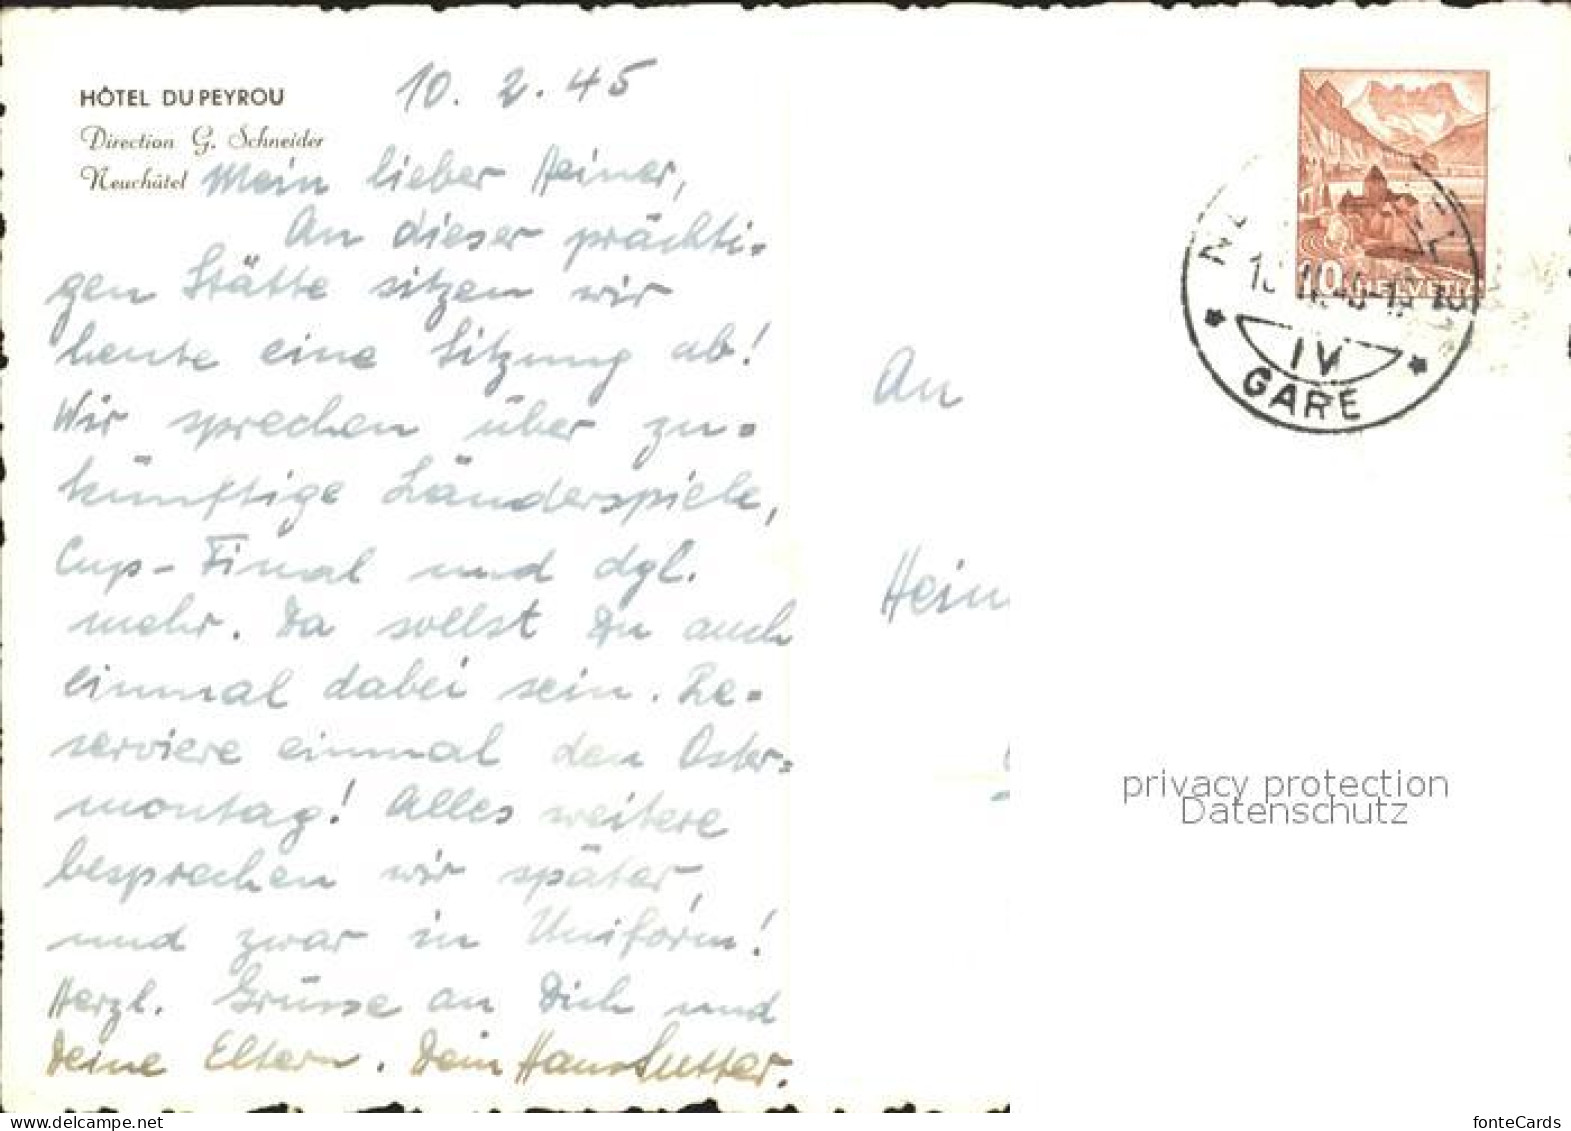 HÔTEL DU PEYROU
Direction G. Schneider
Neuchâtel
10. 2. 45
Mein lieber Heiner,
An dieser prächti=
gen Stätte sitzen wir
heute eine Sitzung ab!
Wir sprechen über zu=
künftige Länderspiele,
Cup-Final und dgl.
mehr. Da sollst Du auch
einmal dabei sein. Re=
serviere einmal den Oster=
montag! Alles weitere
besprechen wir später,
und zwar in Uniform!
Herzl. Grüsse an Dich und
Deine Eltern. Dein Hans Sutter.
An
Hein
10
HELVETIA
IV
GARE
privacy protection
Datenschutz
fonteCards